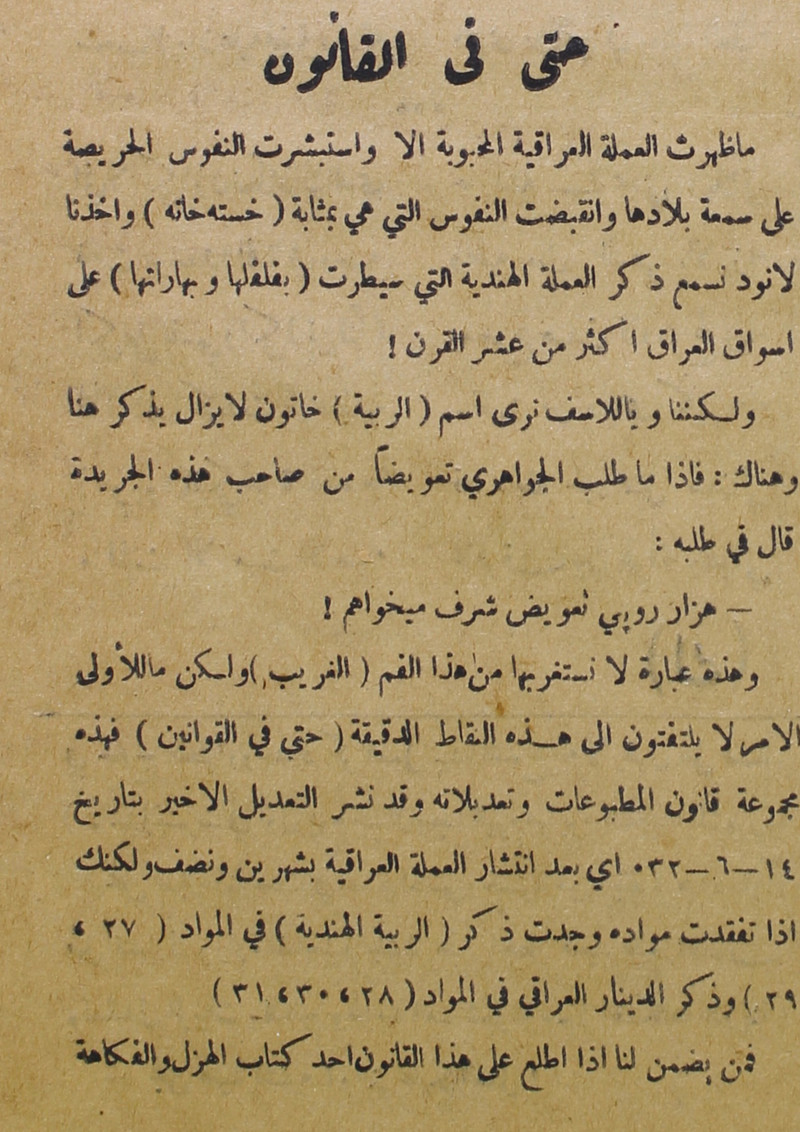 حتى فى القانون
ماظهرت العملة العراقية المحبوبة الا واستبشرت النفوس الحريصة
على سمعة بلادها وانقبضت النفوس التي هي بمثابة ( خسته خانه ) واخذنا
لانود نسمع ذكر العملة الهندية التي سيطرت ( بفلفلها وبهاراتها ) على
اسواق العراق اكثر من عشر القرن !
ولكننا وياللاسف نرى اسم ( الربية ) خاتون لايزال يذكر هنا
وهناك : فاذا ما طلب الجواهري تعويضاً من صاحب هذه الجريدة
قال في طلبه :
— هزار روپي تعويض شرف ميخواهم !
وهذه عبارة لا نستغربها من هذا الفم ( الغريب ) ولكن ماللأولى
الامر لا يلتفتون الى هذه النقاط الدقيقة ( حتى في القوانين ) فهذه
مجموعة قانون المطبوعات وتعديلاته وقد نشر التعديل الاخير بتاريخ
١٤—٦—٠٣٢ اي بعد انتشار العملة العراقية بشهرين ونصف ولكنك
اذا تفقدت مواده وجدت ذكر ( الربية الهندية ) في المواد ( ٢٧ ،
٢٩ ) وذكر الدينار العراقي في المواد ( ٢٨ ، ٣٠ ، ٣١ )
فمن يضمن لنا اذا اطلع على هذا القانون احد كتاب الهزل والفكاهة